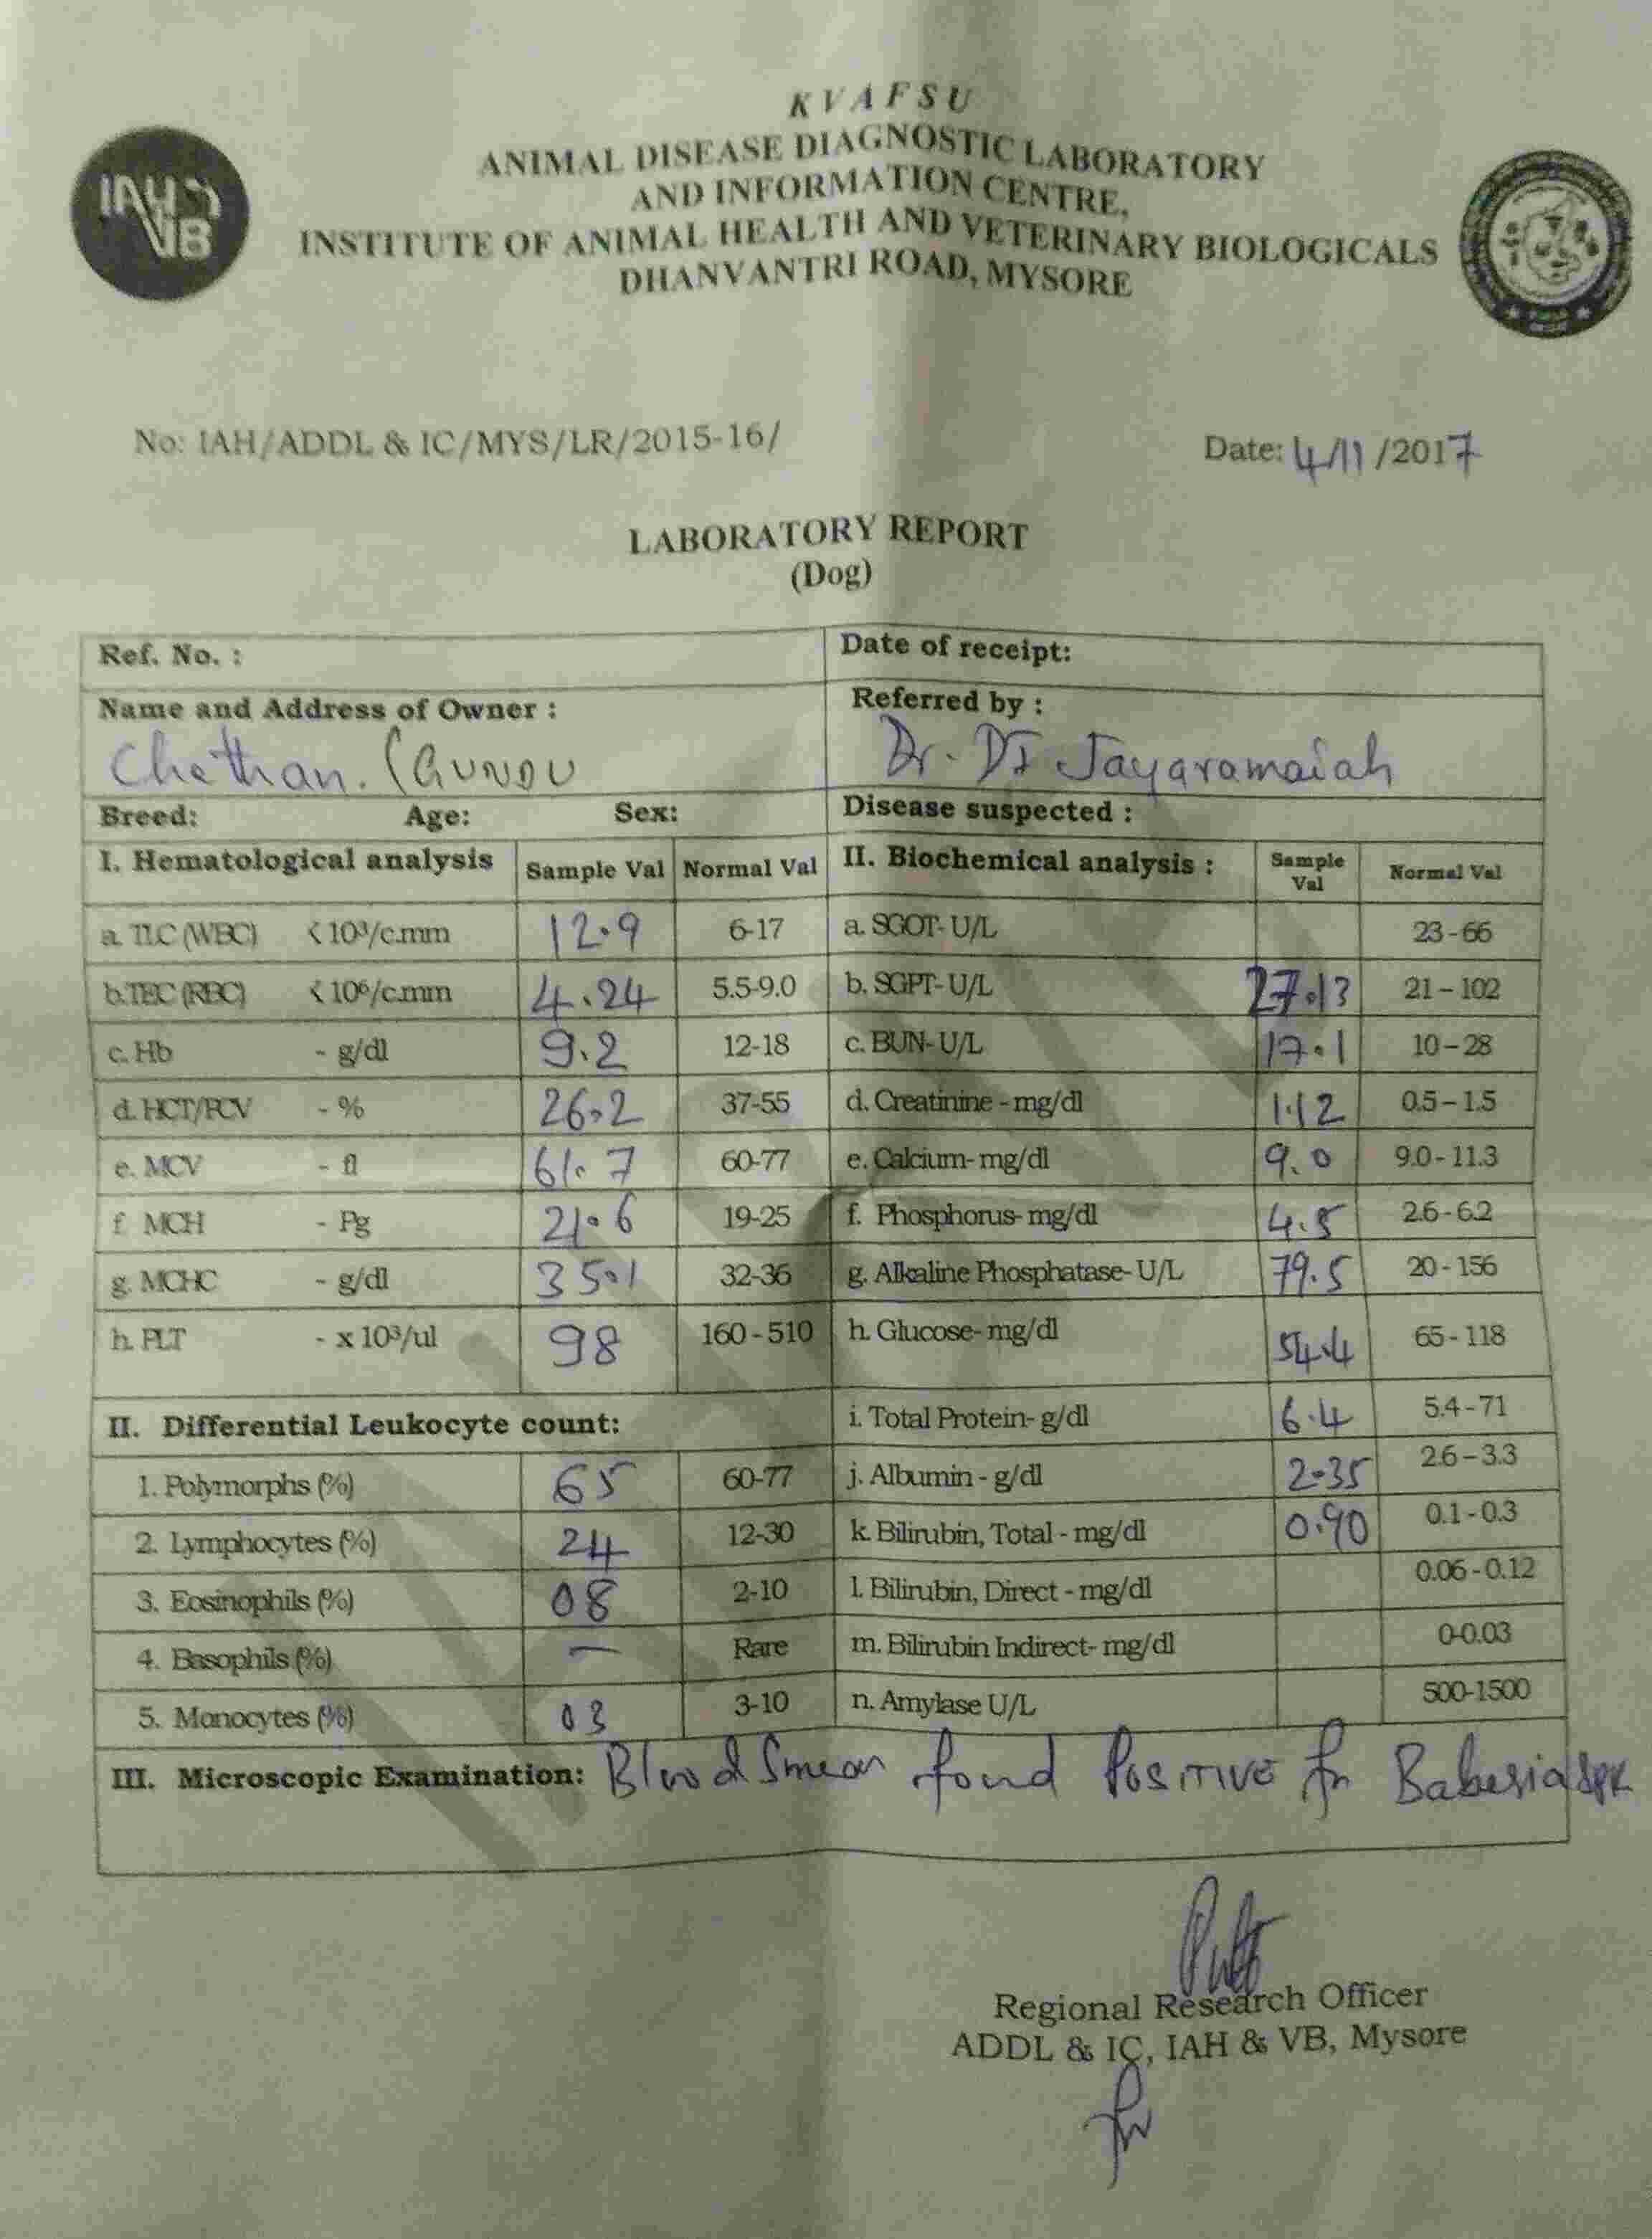 KVAFSU
ANIMAL DISEASE DIAGNOSTIC LABORATORY
AND INFORMATION CENTRE,
INSTITUTE OF ANIMAL HEALTH AND VETERINARY BIOLOGICALS
DHANVANTRI ROAD, MYSORE
No: IAH/ADDL & IC/MYS/LR/2015-16/ Date: 4/11/2017
LABORATORY REPORT
(Dog)
Ref. No. : Date of receipt:
Name and Address of Owner : Referred by :
Chethan. (GUNDU Dr. DT Jayaramaiah
Breed: Age: Sex: Disease suspected :
I. Hematological analysis Sample Val Normal Val II. Biochemical analysis : Sample Val Normal Val
a. TLC (WBC) < 10³/c.mm 12.9 6-17 a. SGOT- U/L 23-66
b. TEC (RBC) < 10⁶/c.mm 4.24 5.5-9.0 b. SGPT- U/L 27.13 21 – 102
c. Hb - g/dl 9.2 12-18 c. BUN- U/L 17.1 10 – 28
d. HCT/PCV - % 26.2 37-55 d. Creatinine - mg/dl 1.12 0.5 – 1.5
e. MCV - fl 61.7 60-77 e. Calcium- mg/dl 9.0 9.0 - 11.3
f. MCH - Pg 21.6 19-25 f. Phosphorus- mg/dl 4.5 2.6 - 6.2
g. MCHC - g/dl 35.1 32-36 g. Alkaline Phosphatase- U/L 79.5 20 - 156
h. PLT - x 10³/ul 98 160 - 510 h. Glucose- mg/dl 54.4 65 - 118
II. Differential Leukocyte count: i. Total Protein- g/dl 6.4 5.4 – 71
1. Polymorphs (%) 65 60-77 j. Albumin - g/dl 2.35 2.6 – 3.3
2. Lymphocytes (%) 24 12-30 k. Bilirubin, Total - mg/dl 0.90 0.1 - 0.3
3. Eosinophils (%) 08 2-10 l. Bilirubin, Direct - mg/dl 0.06 - 0.12
4. Basophils (%) — Rare m. Bilirubin Indirect- mg/dl 0-0.03
5. Monocytes (%) 03 3-10 n. Amylase U/L 500-1500
III. Microscopic Examination: Blood Smear found POSITIVE for Babesia
Regional Research Officer
ADDL & IC, IAH & VB, Mysore